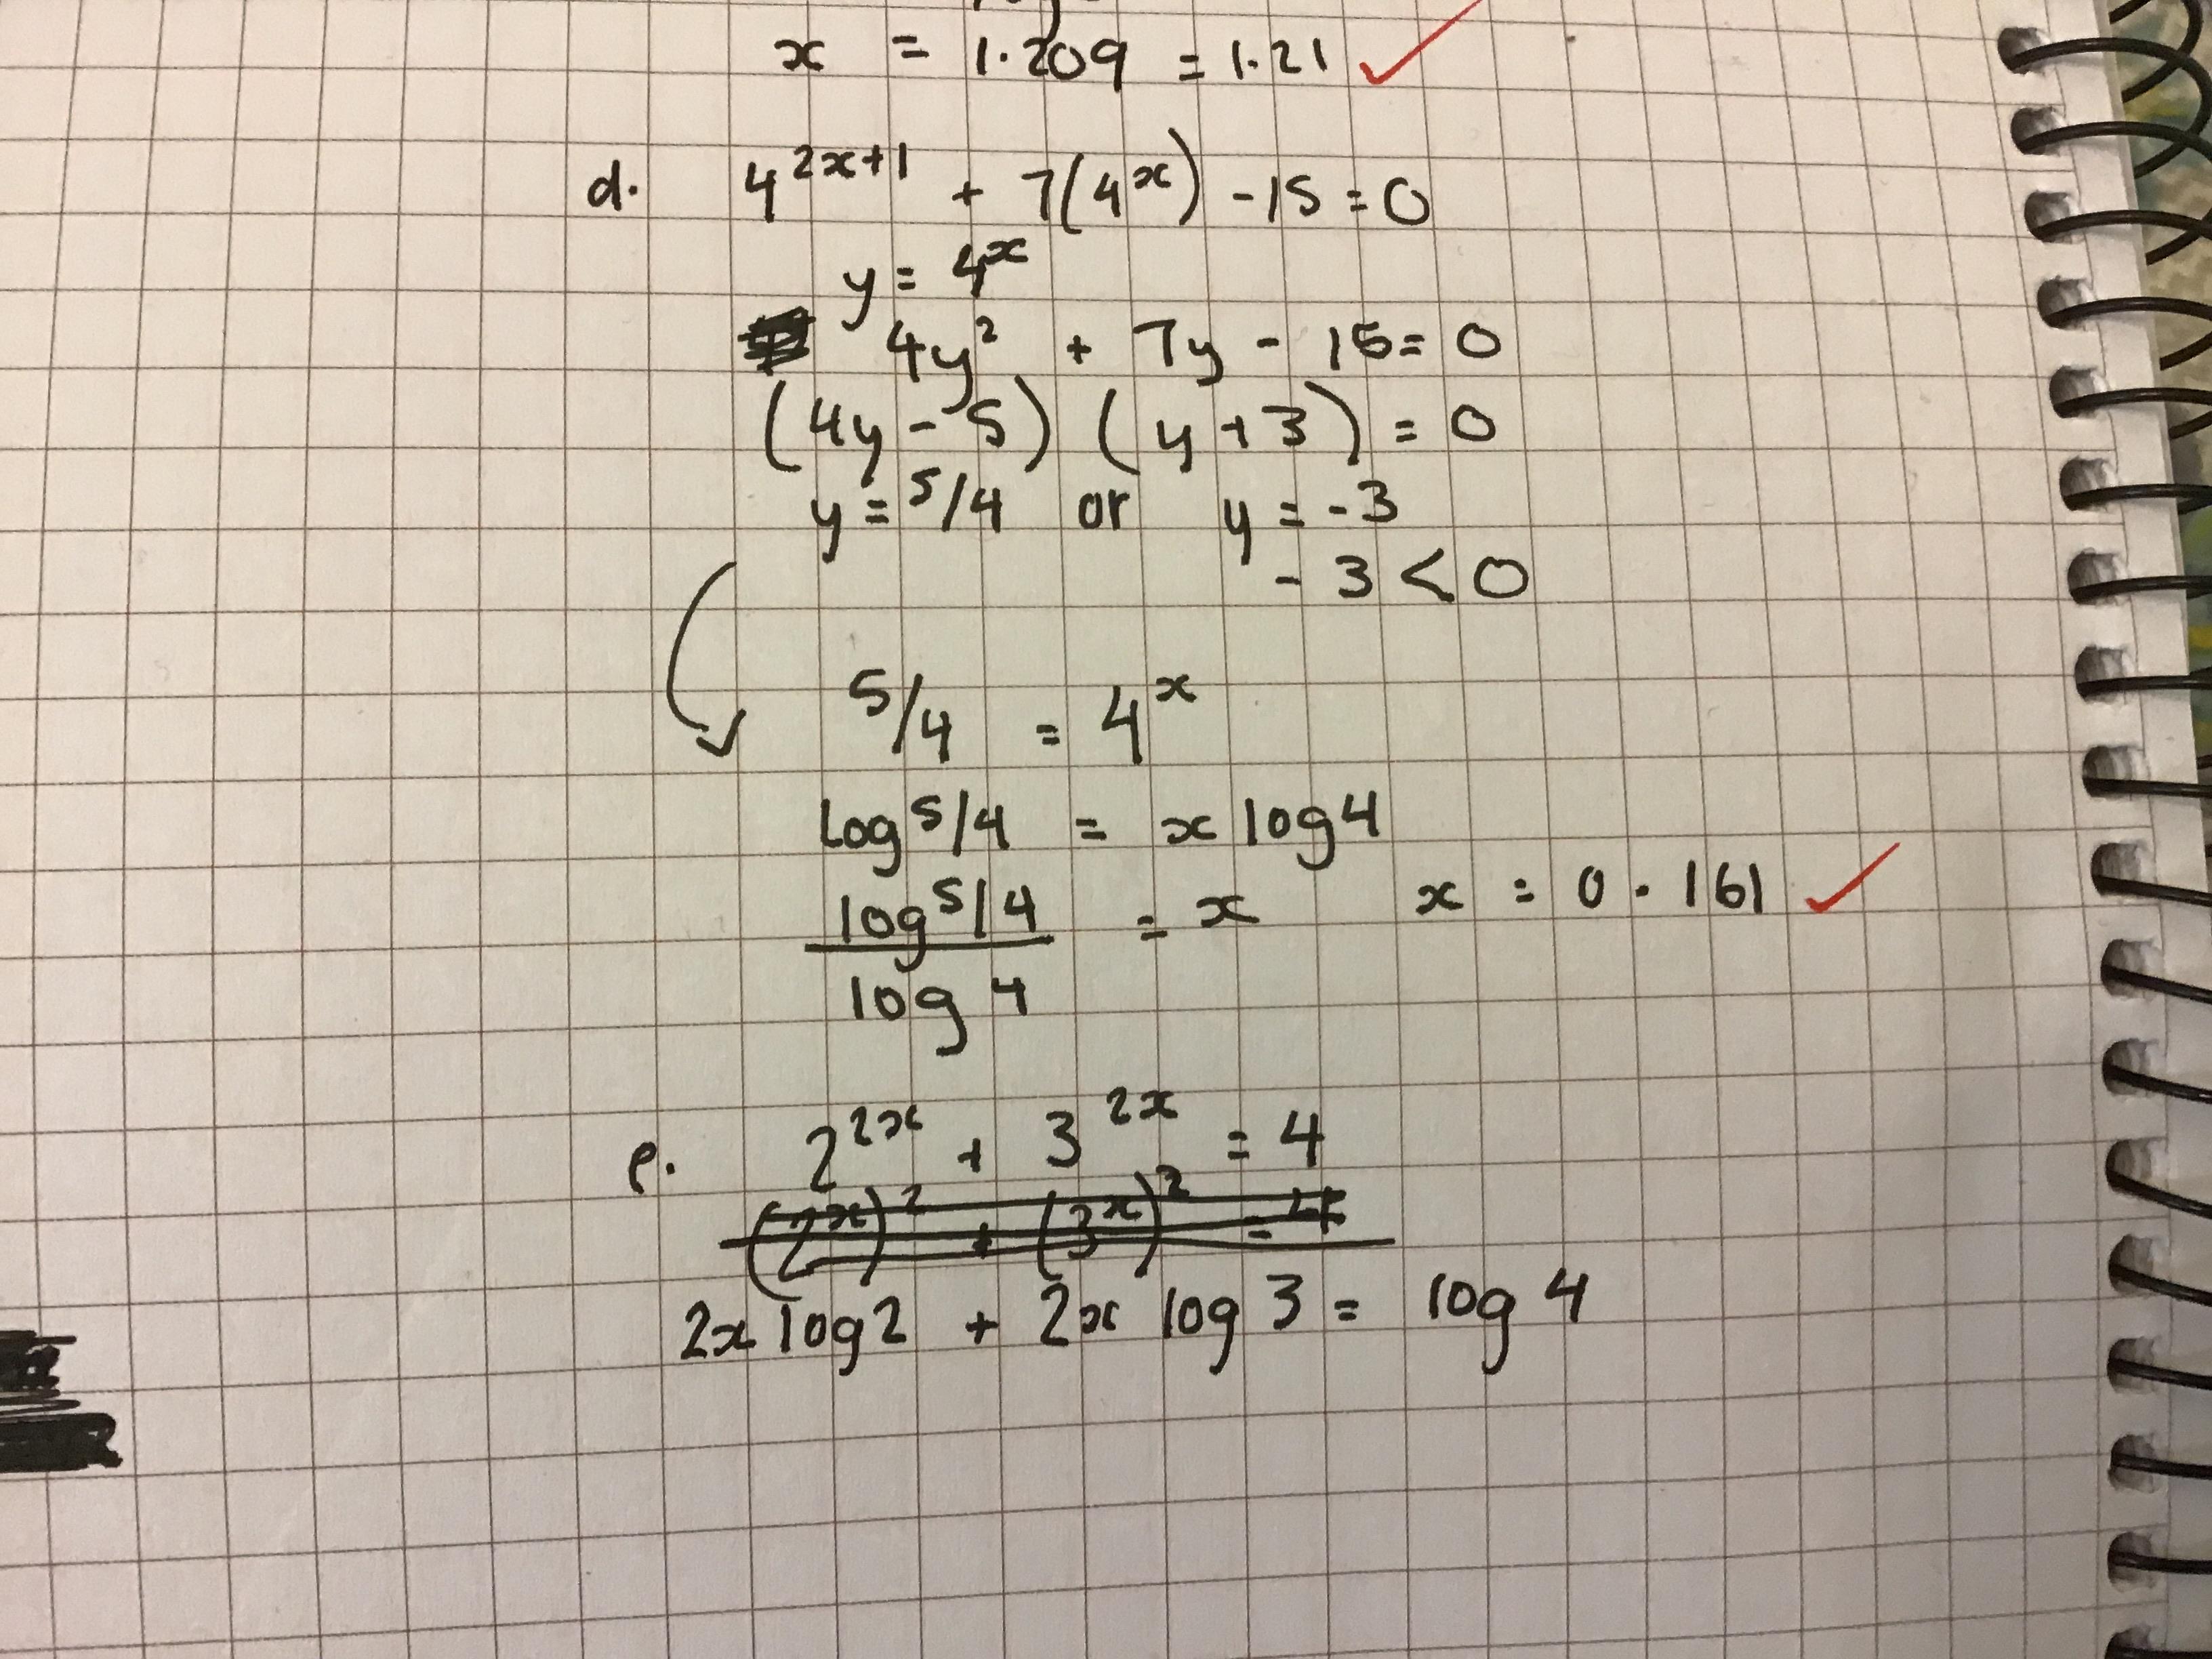 x = 1.209 = 1.21 ✓
d. 4^{2x+1} + 7(4^x) -15 = 0
y = 4^x
4y² + 7y - 15 = 0
(4y - 5) (y + 3) = 0
y = 5/4 or y = -3
- 3 < 0
5/4 = 4^x
log 5/4 = x log 4
log 5/4 / log 4 = x x = 0.161 ✓
e. 2^{2x} + 3^{2x} = 4
(2^x)² + (3^x)² = 4
2x log 2 + 2x log 3 = log 4